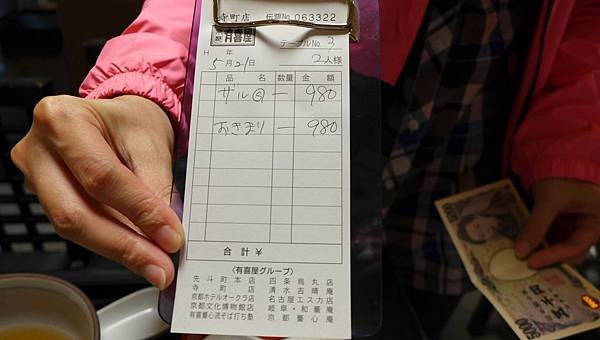 寺町店 伝票No. 063322
有喜屋
テーブルNo. 3
H 年
5月21日 2人様
品 名 数量 金 額
ザル 一 980
おきまり 一 980
合 計 ¥
〈有喜屋グループ〉
先斗町本店 四条烏丸店
寺町店 清水吉晴庵
京都ホテルオークラ店 名古屋エスカ店
京都文化博物館店 岐阜・和蔓庵
有喜屋心流そば打ち塾 京都蔓心庵